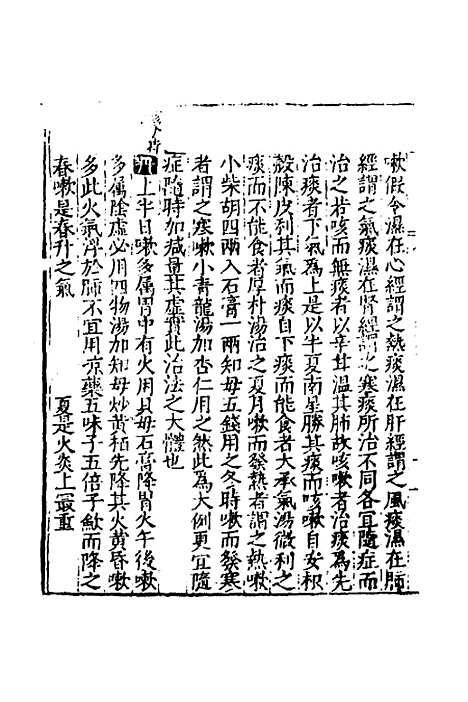 嗽假令濕在心經謂之熱痰濕在肝經謂之風痰濕在肺
經謂之氣痰濕在腎經謂之寒痰所治不同各宜隨症而
治之若咳而無痰者以辛甘溫其肺故咳嗽者治痰爲先
治痰者下氣爲上是以半夏南星勝其痰而咳嗽自安枳
殼陳皮利其氣而痰自下痰而能食者大承氣湯微利之
痰而不能食者厚朴湯治之夏月嗽而發熱者謂之熱嗽
小柴胡四兩入石膏一兩知毋五錢用之冬時嗽而發寒
者謂之寒嗽小青龍湯加杏仁用之然此爲大例更宜隨
症隨時加减量其虛實此治法之大體也
上半日嗽多属胃中有火用貝毋石膏降胃火午後嗽
多属陰虛必用四物湯加知毋炒黃栢先降其火黃昏嗽
多此火氣浮於肺不宜用凉藥五味子五倍子歛而降之
春嗽是春升之氣 夏是火炎上㝡重